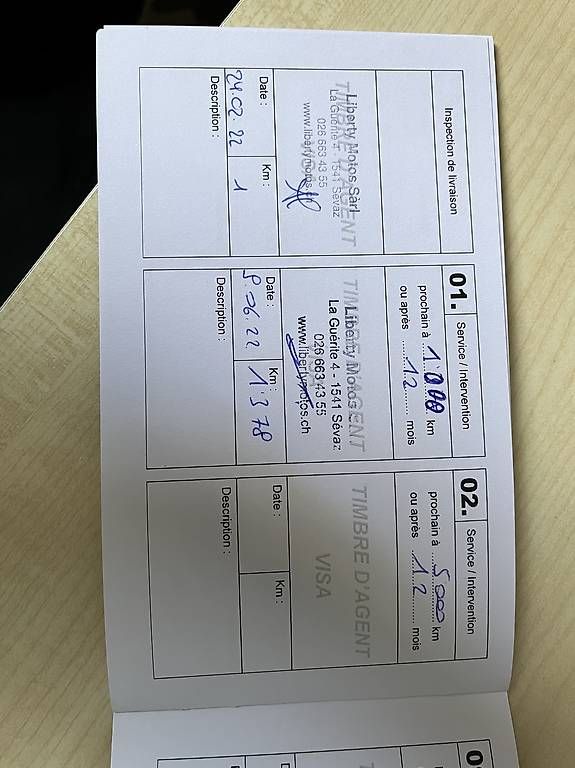 Inspection de livraison
TIMBRE D'AGENT
Liberty Motos Sàrl
La Guérite 4 - 1541 Sévaz
026 663 43 55
www.libertymotos.ch
Date : Km :
24.02.22 1
Description :
01. Service / Intervention
prochain à 1'000 km
ou après 12 mois
TIMBRE D'AGENT
Liberty Motos
La Guérite 4 - 1541 Sévaz
026 663 43 55
www.libertymotos.ch
Date : Km :
06.22 1'378
Description :
02. Service / Intervention
prochain à 5000 km
ou après 12 mois
TIMBRE D'AGENT
VISA
Date : Km :
Description :